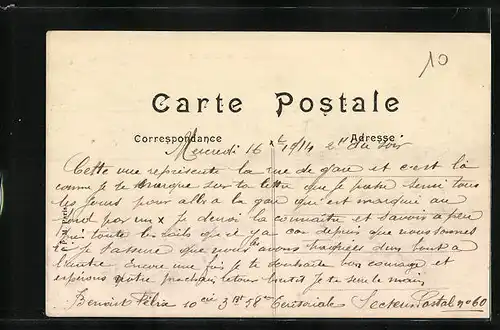 10
Carte Postale
Correspondance Adresse
Mercredi 16 1914 du soir
Cette vue représente la rue de gare et c'est là
comme je te marque sur ta lettre que je passe tous
les jours pour aller à la gare qui est marqué au
fond par un x je devrai la connaître et savoir à peu
toute les qu'il y a car depuis que nous sommes
Je t'assure que nous avons d'un bout à
l'autre Encore une fois je te souhaite bon courage et
espérons notre prochain retour bientôt je te serre la main
Benoit 10 cie 3 58 Territoriale Secteur Postal no 60